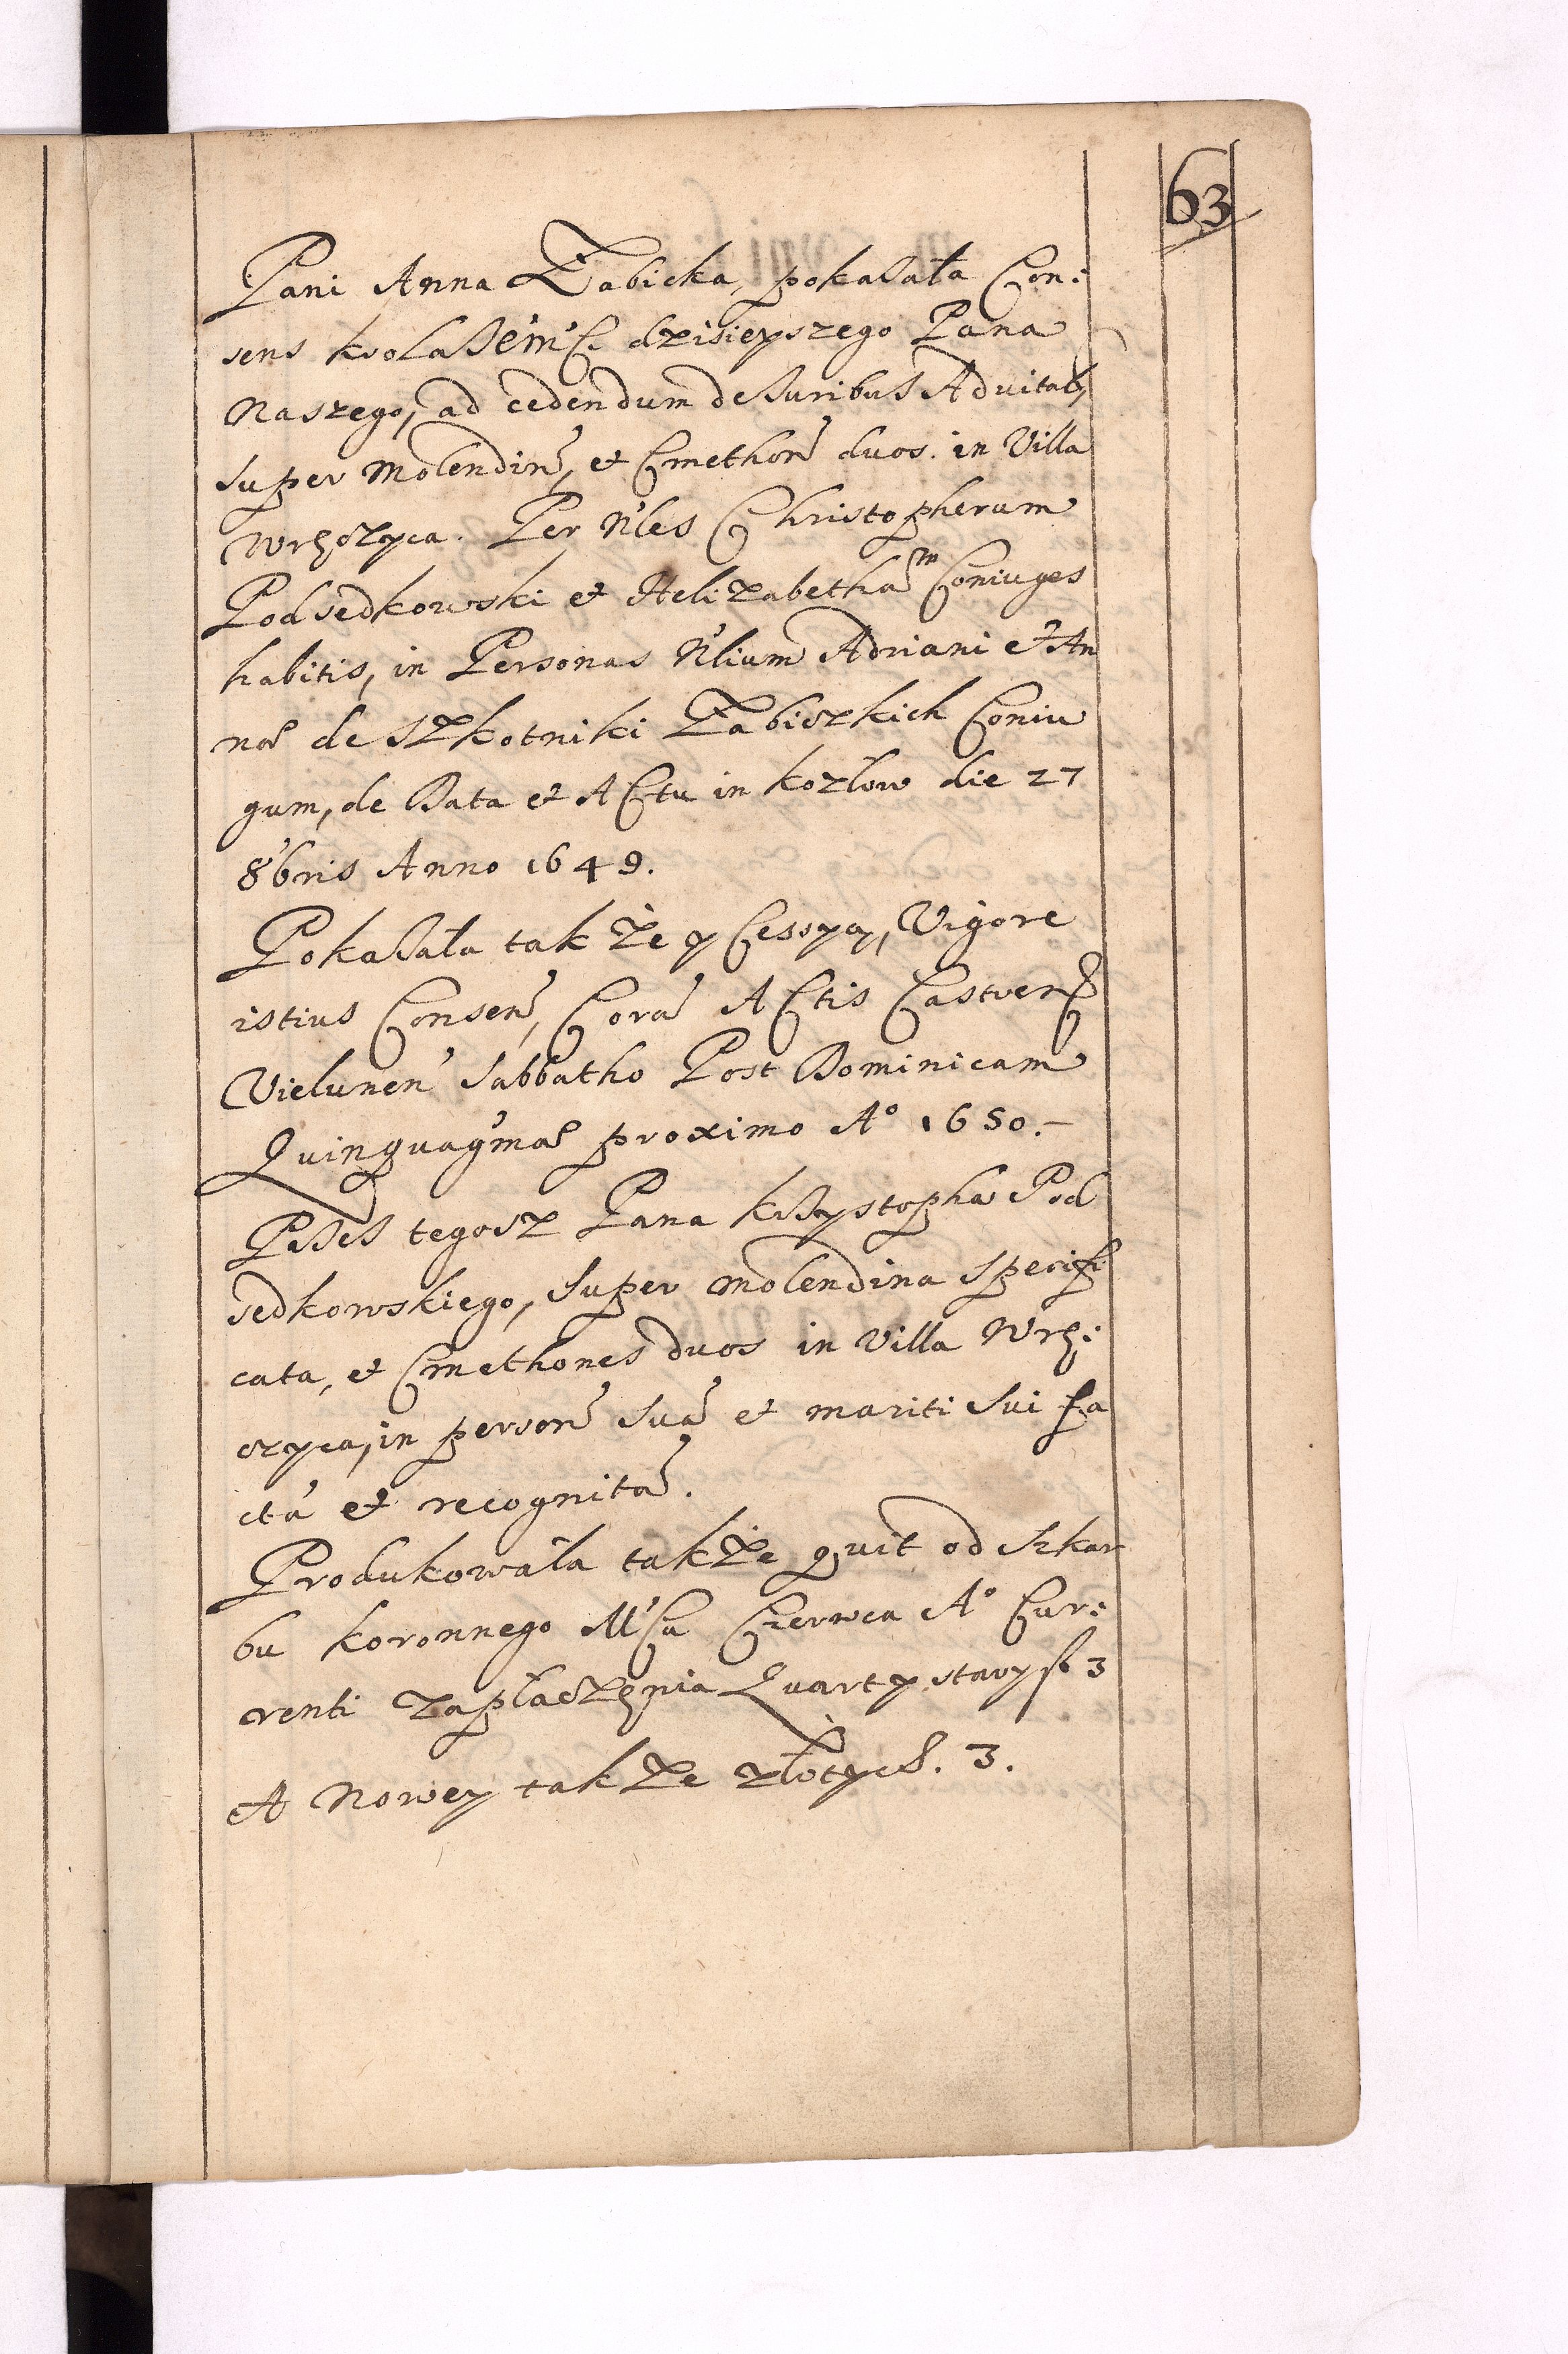 63
Pani Anna Żabicka, pokaSała Con:
sens krolaJe͠m͠C. dzisieyszego Pana
Naszego, ad cedendum de Iuribus Aduitalb,
super Molendin̄, et Cmethon̄ duos. in Villa
Wręczyca. Per N'les Christopherum
Podsedkowski et Helizabetham Coniuges
habitis, in Personas N'lium Adriani et An
nae de Szkotniki Żabiczkich Coniu
gum, de Data et ACtu in kozlow die 27
8'bris Anno 1649.
PokaSała tak że y Cessyą, Vigore
istius Consen̄, Corā ACtis Castren̄
Vielunen' Sabbatho Post Dominicam
Quinquag'mae proximo A° 1650.-
PSSeS tegosz Pana kSSystopha Pod
sedkowskiego, super molendina specifi
cata, et Cmethones duos in Villa Wrę:
czyca, in person̄ suā et mariti sui fa
ctā et recognitā.
Produkowała także quit od Szkar
bu koronnego M'Ca Czerwca A° Cur:
renti zapłaczęnia Quarty stary f 3
A Nowey tak że złotych. 3.